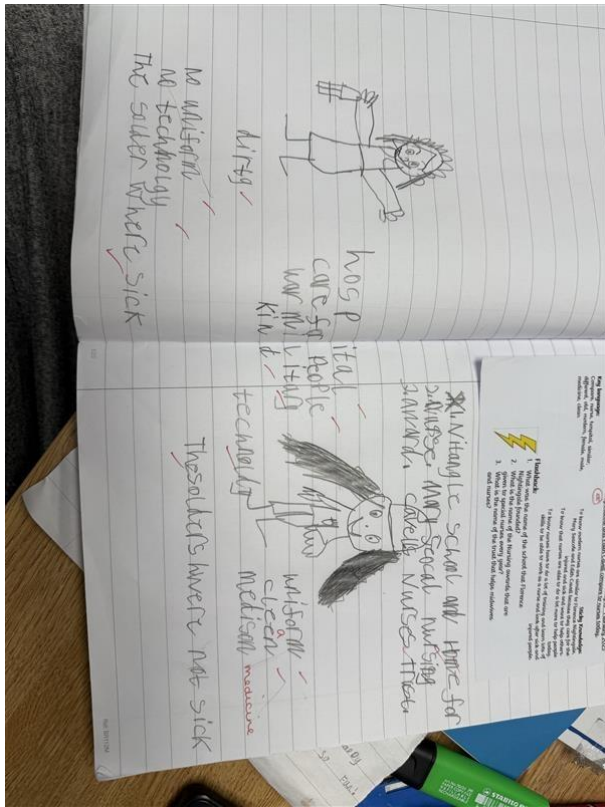 Key language:
Compare, nurse, hospital, similar,
different, old, modern, female, male,
medicine, clean.
Sticky Knowledge:
To know modern nurses are similar to Florence Nightingale,
Mary Seacole and Edith Cavell because they care for the
injured and sick and want to help others.
To know that nurses are able to do a lot more to help people
today.
To know nurses have to do a lot of training and learn lots of
skills to be able to work as a nurse and look after sick and
injured people.
Flashback:
1. What was the name of the school that Florence
Nightingale founded?
2. What is the name of the Nursing awards that are
given to special nurses every year?
3. What is the name of the trust that helps midwives
and nurses?
1. Nitangle school and Home for
2. Nurse. Mary Seocal nursing
3. award. cavell Nurses Trust.
hospital
care for People
war military
kind
dirty
no uniform
no technology
The solder where sick
uniform
clean
a
medicin
medicine
technoligy
The solders where not sick
STABILO